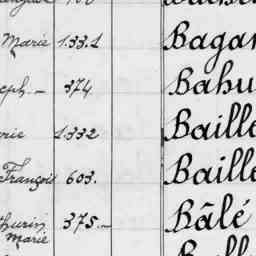 Marie 1331 Bagar
eph - 374 Bahu
rie 1332 Baille
François 603. Baille
thurin 375.- Bâlé
Marie